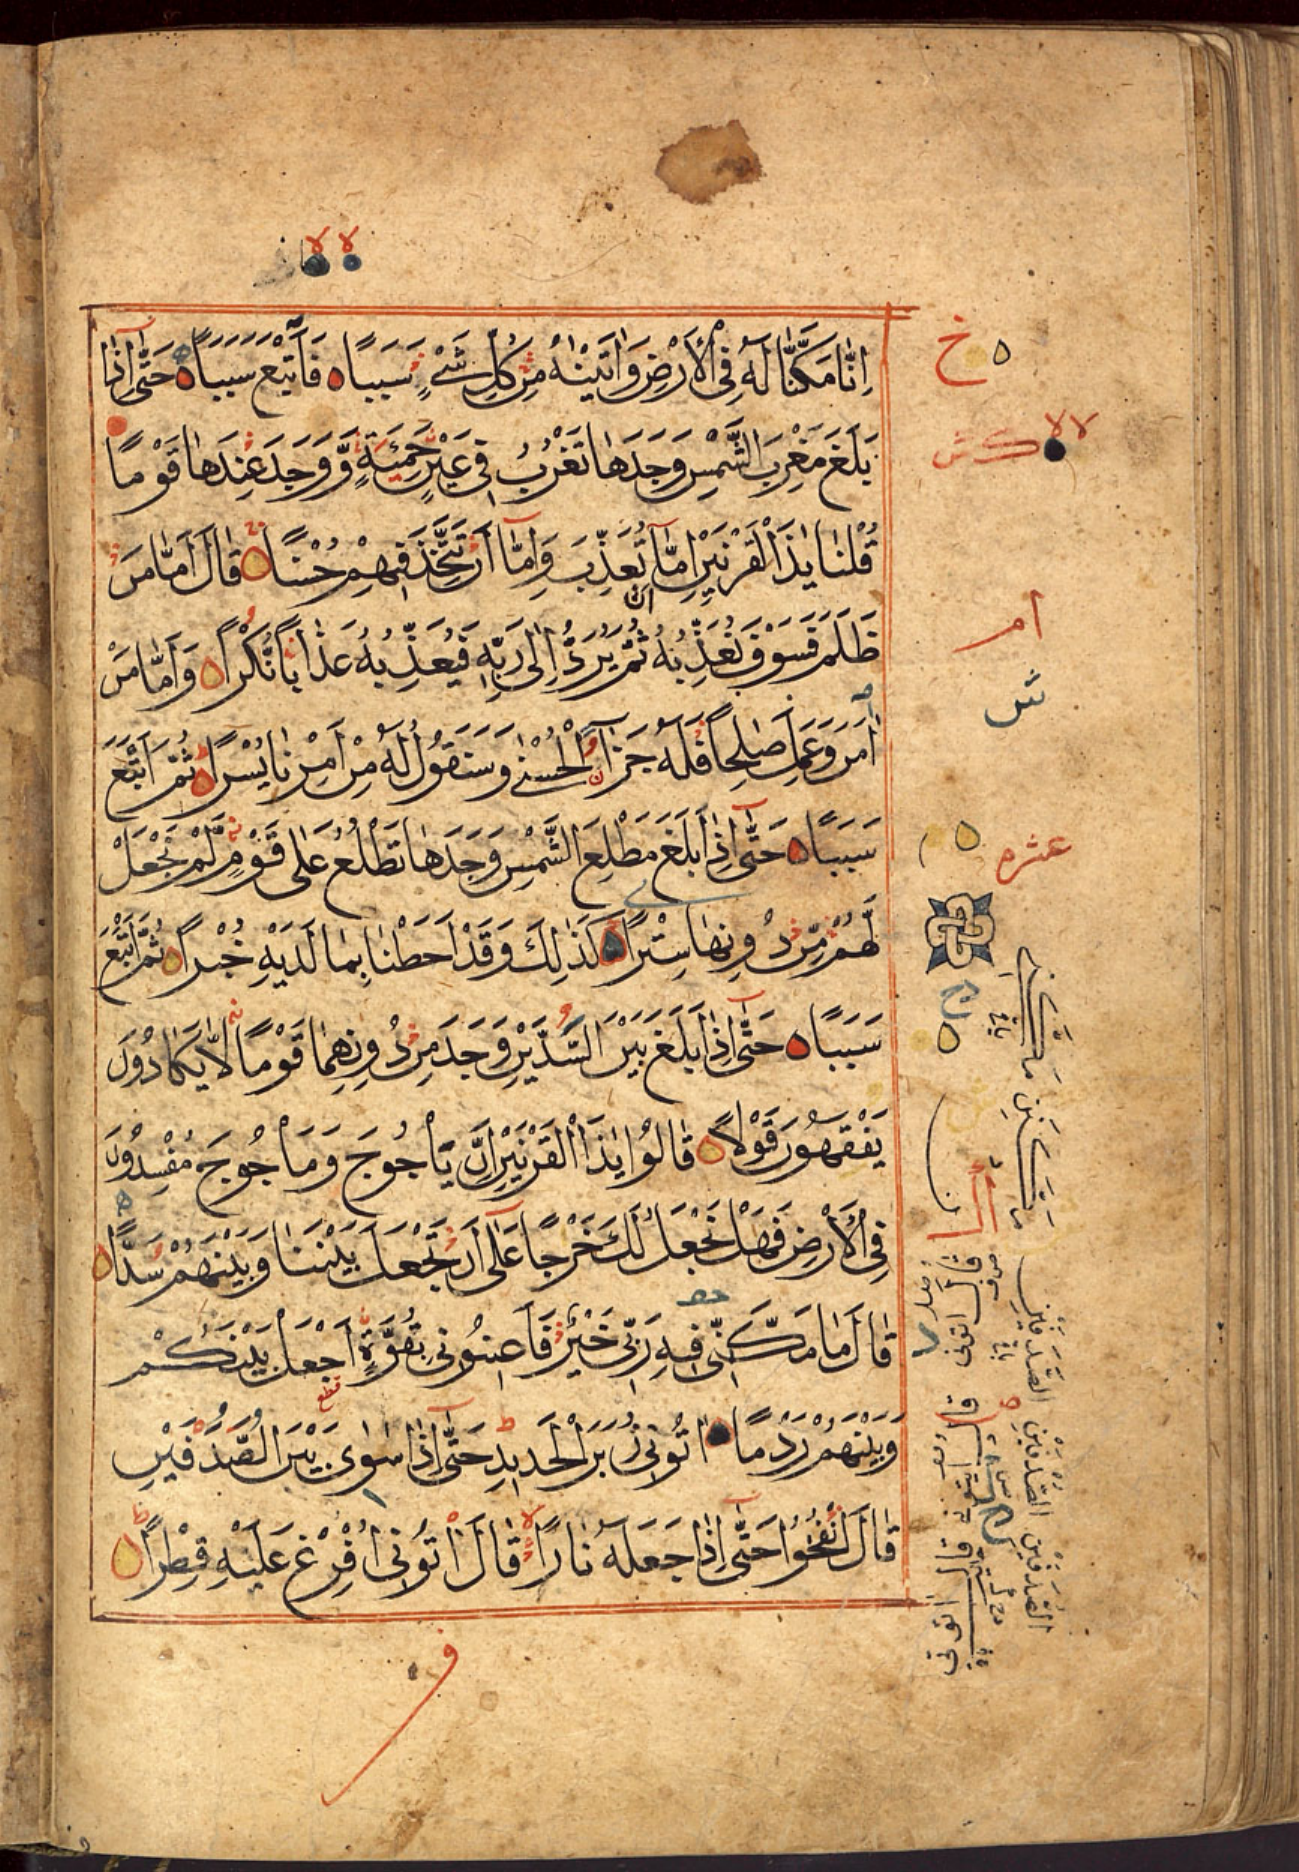 اِنَّا مَكَّنَّا لَهُ فِي الْاَرْضِ وَاٰتَيْنٰهُ مِنْ كُلِّ شَيْءٍ سَبَبًا ه فَاَتْبَعَ سَبَبًا ه حَتّٰٓى اِذَا
بَلَغَ مَغْرِبَ الشَّمْسِ وَجَدَهَا تَغْرُبُ فِي عَيْنٍ حَمِئَةٍ وَّوَجَدَ عِنْدَهَا قَوْمًا
قُلْنَا يٰذَا الْقَرْنَيْنِ اِمَّآ اَنْ تُعَذِّبَ وَاِمَّآ اَنْ تَتَّخِذَ فِيْهِمْ حُسْنًا ه قَالَ اَمَّا مَنْ
ظَلَمَ فَسَوْفَ نُعَذِّبُهُ ثُمَّ يُرَدُّ اِلٰى رَبِّهِ فَيُعَذِّبُهُ عَذَابًا نُّكْرًا ه وَاَمَّا مَنْ
اٰمَنَ وَعَمِلَ صٰلِحًا فَلَهُ جَزَآءً الْحُسْنٰى وَسَنَقُوْلُ لَهُ مِنْ اَمْرِنَا يُسْرًا ه ثُمَّ اَتْبَعَ
سَبَبًا ه حَتّٰٓى اِذَا بَلَغَ مَطْلِعَ الشَّمْسِ وَجَدَهَا تَطْلُعُ عَلٰى قَوْمٍ لَّمْ نَجْعَلْ
لَّهُمْ مِّنْ دُوْنِهَا سِتْرًا ه كَذٰلِكَ وَقَدْ اَحَطْنَا بِمَا لَدَيْهِ خُبْرًا ه ثُمَّ اَتْبَعَ
سَبَبًا ه حَتّٰٓى اِذَا بَلَغَ بَيْنَ السَّدَّيْنِ وَجَدَ مِنْ دُوْنِهِمَا قَوْمًا لَّا يَكَادُوْنَ
يَفْقَهُوْنَ قَوْلًا ه قَالُوْا يٰذَا الْقَرْنَيْنِ اِنَّ يَأْجُوْجَ وَمَأْجُوْجَ مُفْسِدُوْنَ
فِي الْاَرْضِ فَهَلْ نَجْعَلُ لَكَ خَرْجًا عَلٰٓى اَنْ تَجْعَلَ بَيْنَنَا وَبَيْنَهُمْ سَدًّا ه
قَالَ مَا مَكَّنِّي فِيْهِ رَبِّي خَيْرٌ فَاَعِيْنُوْنِي بِقُوَّةٍ اَجْعَلْ بَيْنَكُمْ
وَبَيْنَهُمْ رَدْمًا اٰتُوْنِي زُبَرَ الْحَدِيْدِ حَتّٰٓى اِذَا سَاوٰى بَيْنَ الصَّدَفَيْنِ
قَالَ انْفُخُوْا حَتّٰٓى اِذَا جَعَلَهُ نَارًا قَالَ اٰتُوْنِي اُفْرِغْ عَلَيْهِ قِطْرًا ه
لا لا
عشره